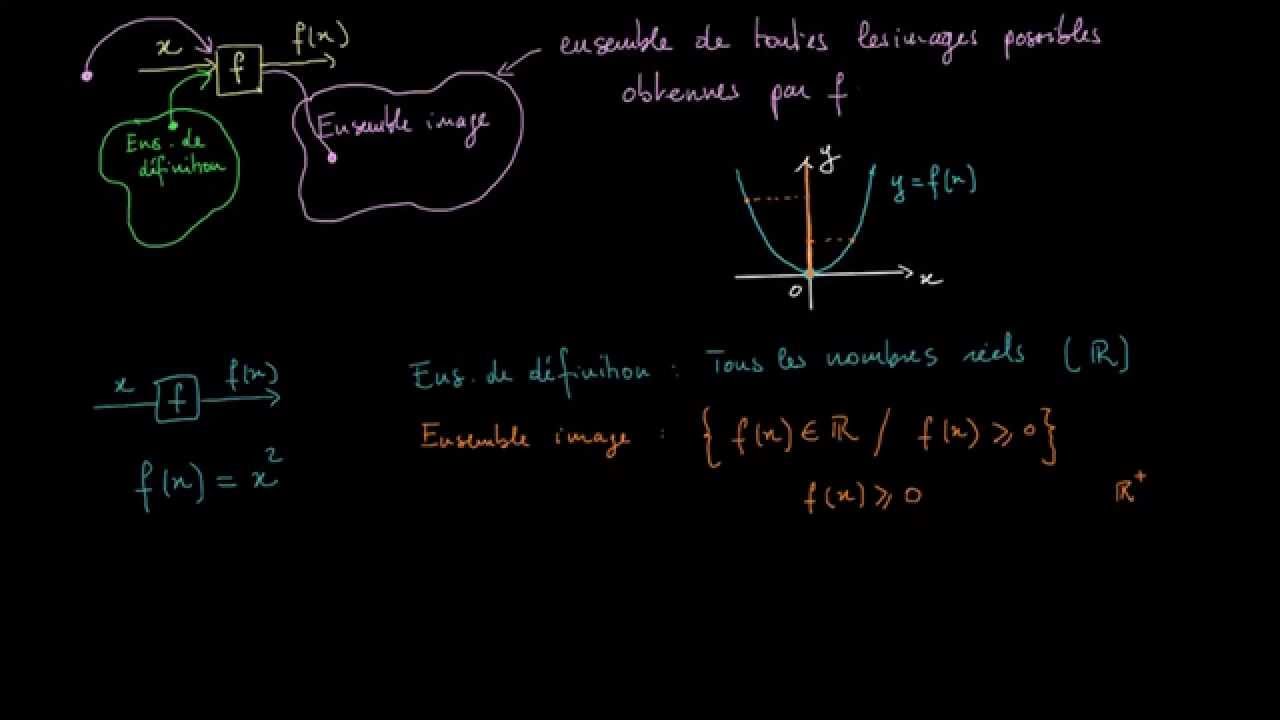 x f f(x)
ensemble de toutes les images possibles
obtenues par f
Ens. de
définition
Ensemble image
y
y = f(x)
x
0
x f f(x)
f(x) = x²
Ens. de définition : Tous les nombres réels (ℝ)
Ensemble image : { f(x) ∈ ℝ / f(x) ⩾ 0 }
f(x) ⩾ 0 ℝ⁺